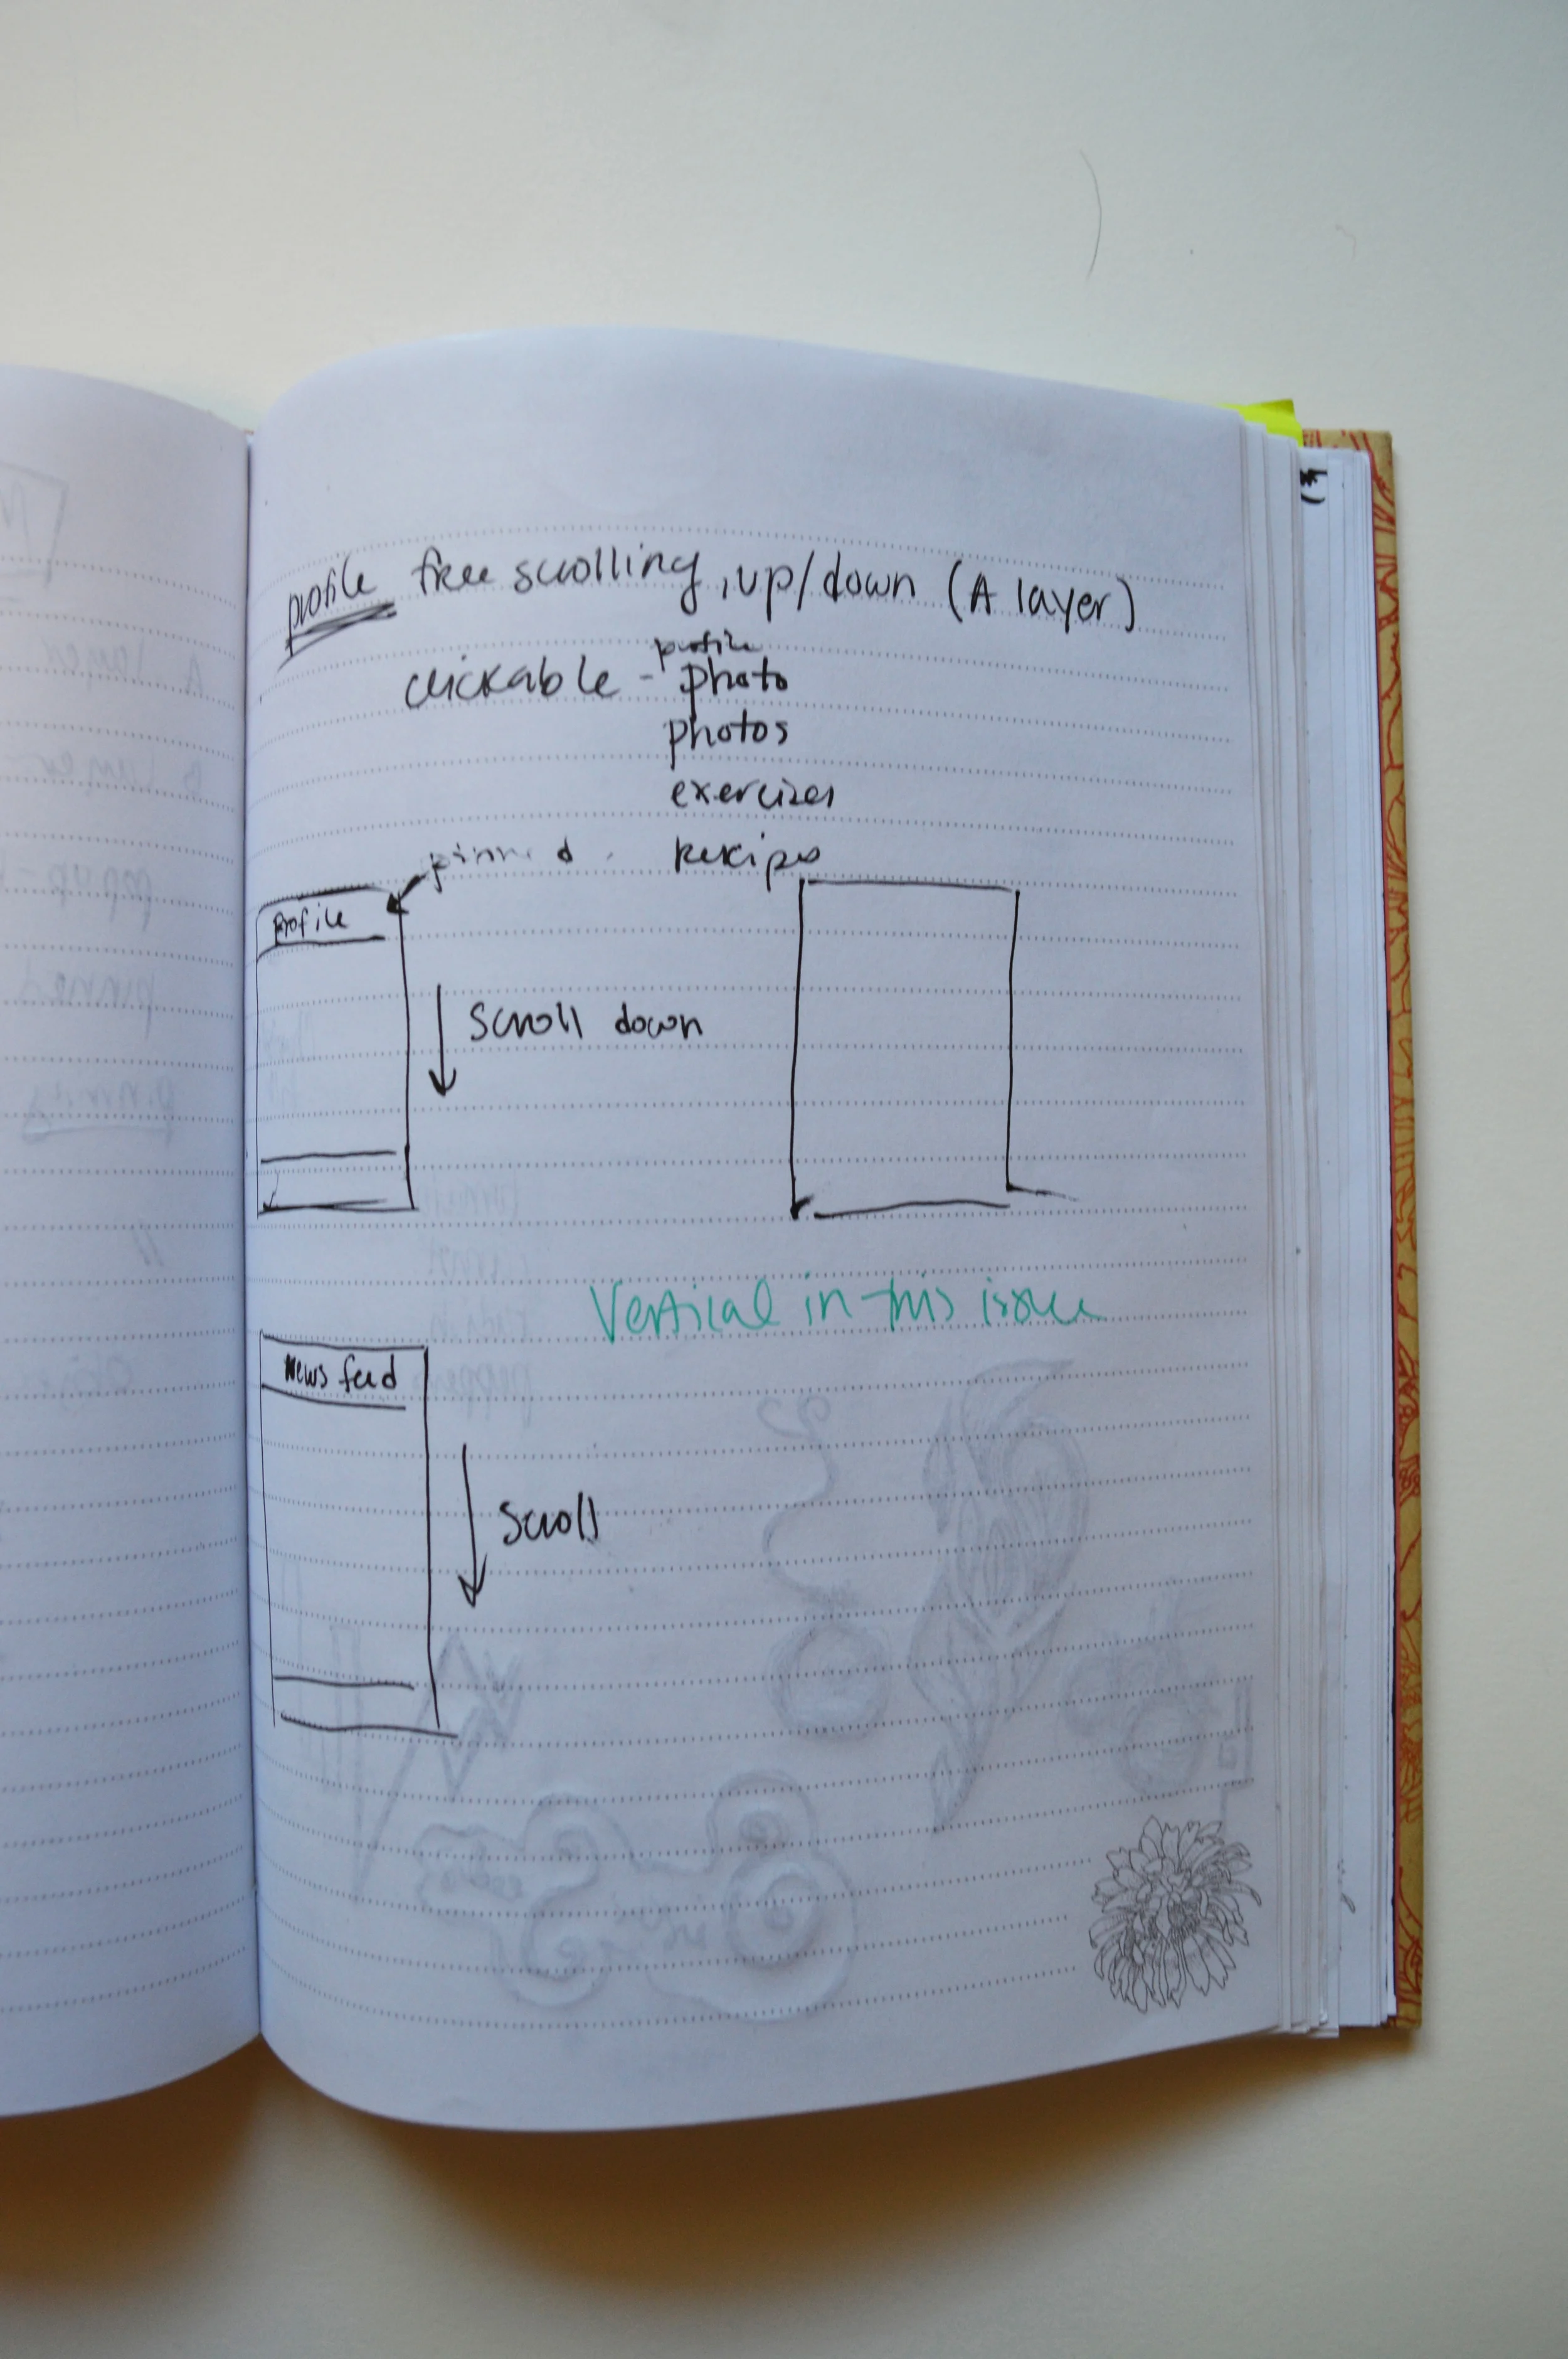 profile free scrolling, up/down (A layer)
profile
clickable - photo
photos
exercises
pinned
Profile
scroll down
Vertical in this issue
News feed
scroll